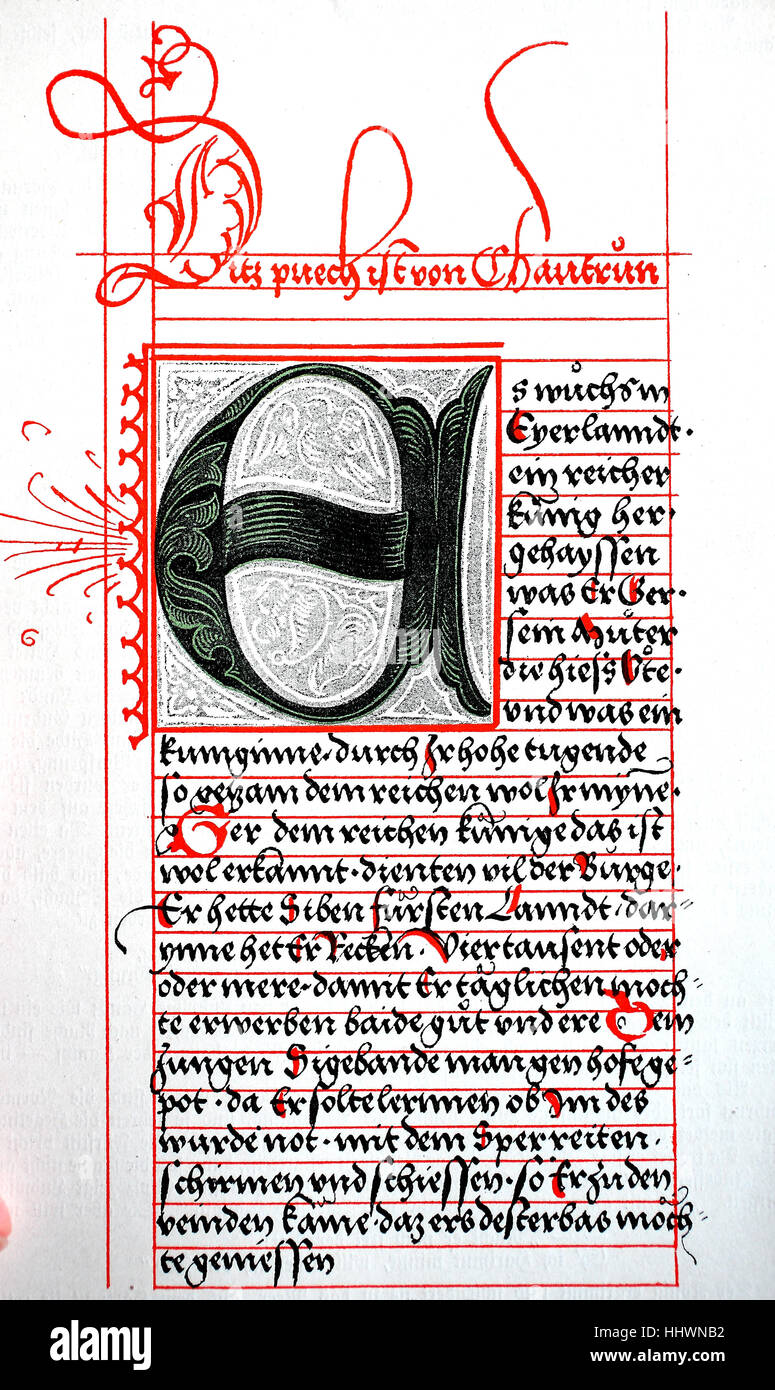 Ditz puech ist von Chautrŭn
Es wŭchs in
Eyerlanndt·
ein reicher
kŭnig her·
gehayssen
was Er Ger·
sein Mŭter
die hiess Ŭte·
vnd was ein
kuniginne· durch Jr hohe tugende
so gezam dem reichen wol Jr mynne·
Ger dem reichen kŭnige das ist
wol erkannt· dienten vil der Burge·
Er hette Siben fürsten Lanndt· dar·
ynne het Er Recken· Viertausent oder
oder mere· damit Er täglichen moch=
te erwerben baide gŭt vnd ere Dem
Jungen Sigebande man gen hofe ge=
pot· da Er solte lernnen ob Jm des
wurde not· mit dem Sper reiten·
schirmen vnd schiessen· so Er zu den
veinden käme· daz ers dester bas moch=
te geniessen
alamy
a
alamy
Image ID: HHWNB2
www.alamy.com